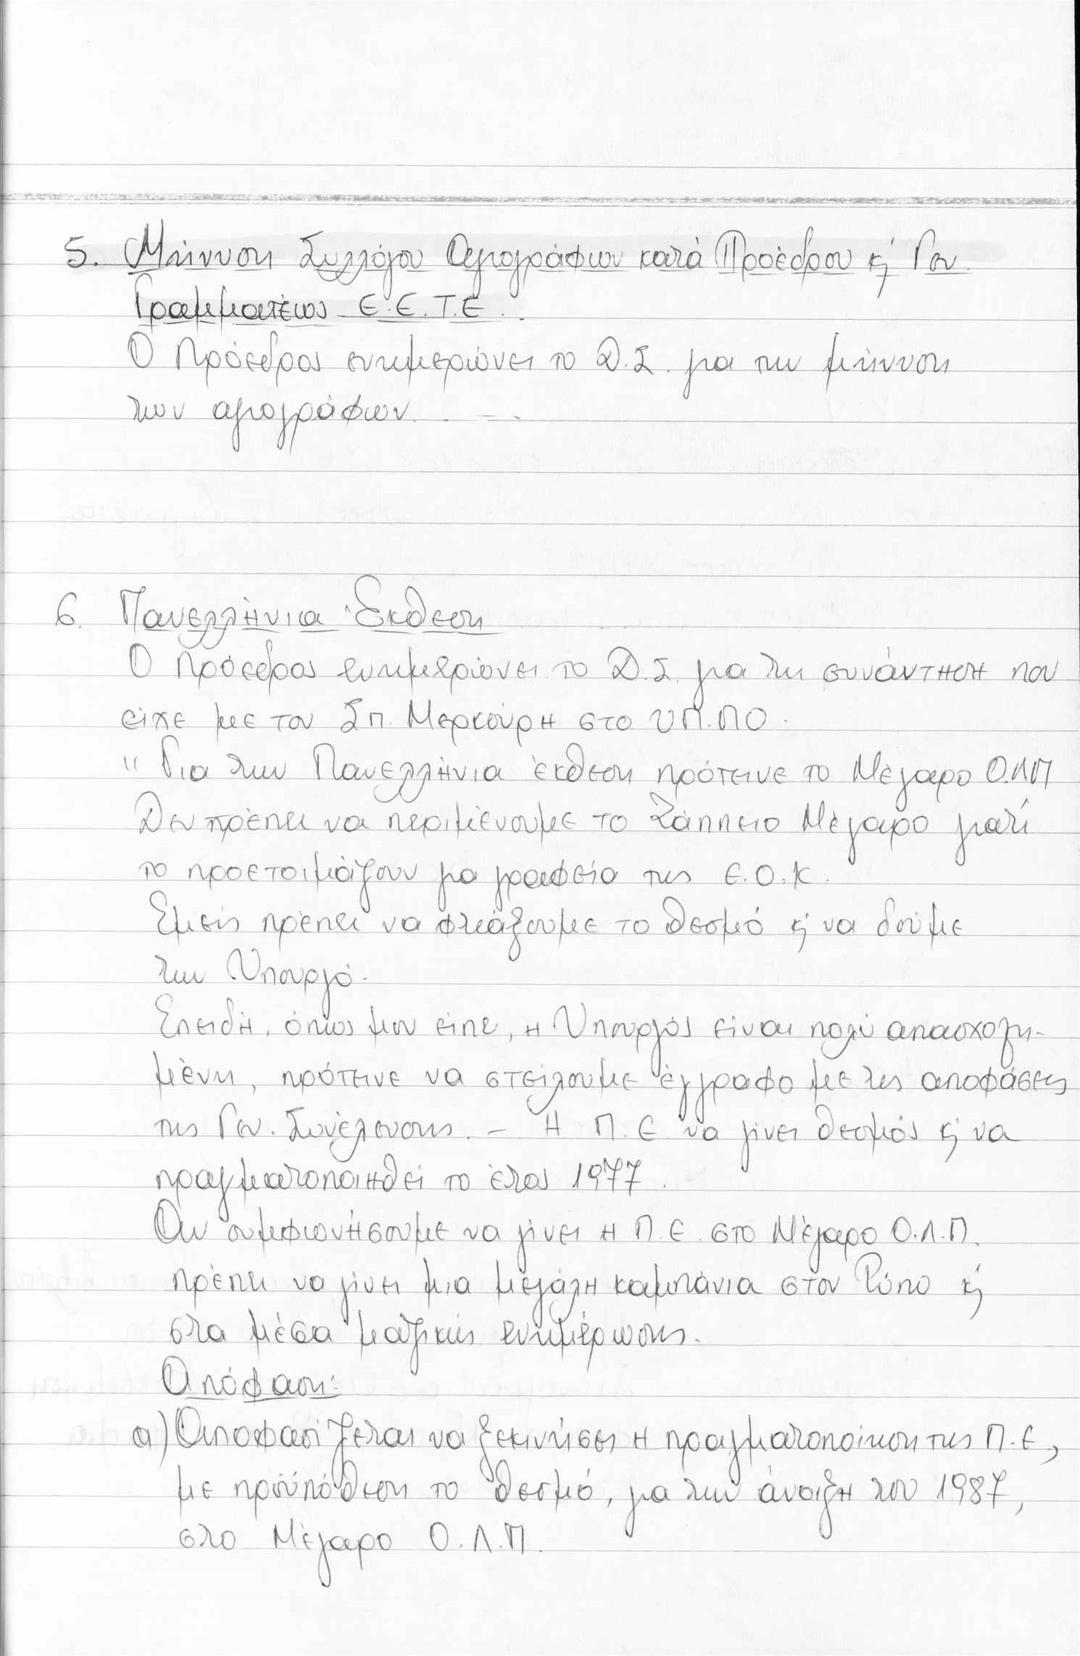 5. Μήνυση Συλλόγου Αγιογράφων κατά Προέδρου κ' Γεν.
Γραμματέως Ε.Ε.Τ.Ε.
Ο Πρόεδρος ενημερώνει το Δ.Σ. για την μήνυση
των αγιογράφων. . —.
6. Πανελλήνια Έκθεση
Ο Πρόεδρος ενημερώνει το Δ.Σ. για τη συνάντηση που
είχε με τον Σπ. Μερκούρη στο ΥΠ.ΠΟ.
" Για την Πανελλήνια έκθεση πρότεινε το Μέγαρο Ο.Λ.Π
Δεν πρέπει να περιμένουμε το Ζάππειο Μέγαρο γιατί
το προετοιμάζουν για γραφείο της Ε.Ο.Κ.
Εμείς πρέπει να φτιάξουμε το θεσμό κ' να δούμε
την Υπουργό.
Επειδή, όπως μου είπε, η Υπουργός είναι πολύ απασχολη-
μένη, πρότεινε να στείλουμε έγγραφο με τις αποφάσεις
της Γεν. Συνέλευσης. – Η Π.Ε να γίνει θεσμός κ' να
πραγματοποιηθεί το έτος 1977.
Αν συμφωνήσουμε να γίνει η Π.Ε. στο Μέγαρο Ο.Λ.Π.
πρέπει να γίνει μια μεγάλη καμπάνια στον Τύπο κ'
στα μέσα μαζικής ενημέρωσης.
Απόφαση:
α) Αποφασίζεται να ξεκινήσει η πραγματοποίηση της Π.Ε,
με προϋπόθεση το θεσμό, για την άνοιξη του 1987,
στο Μέγαρο Ο.Λ.Π.